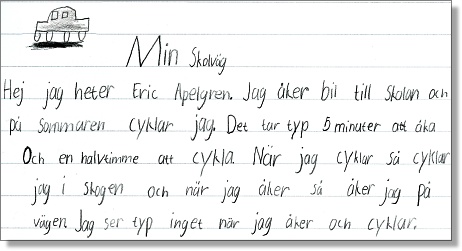 Min Skolväg
Hej jag heter Eric Apelgren. Jag åker bil till Skolan och
på Sommaren cyklar jag. Det tar typ 5 minuter att åka
Och en halvtimme att cykla. När jag cyklar så cyklar
jag i Skogen och när jag åker så åker jag på
vägen Jag ser typ inget när jag åker och cyklar.